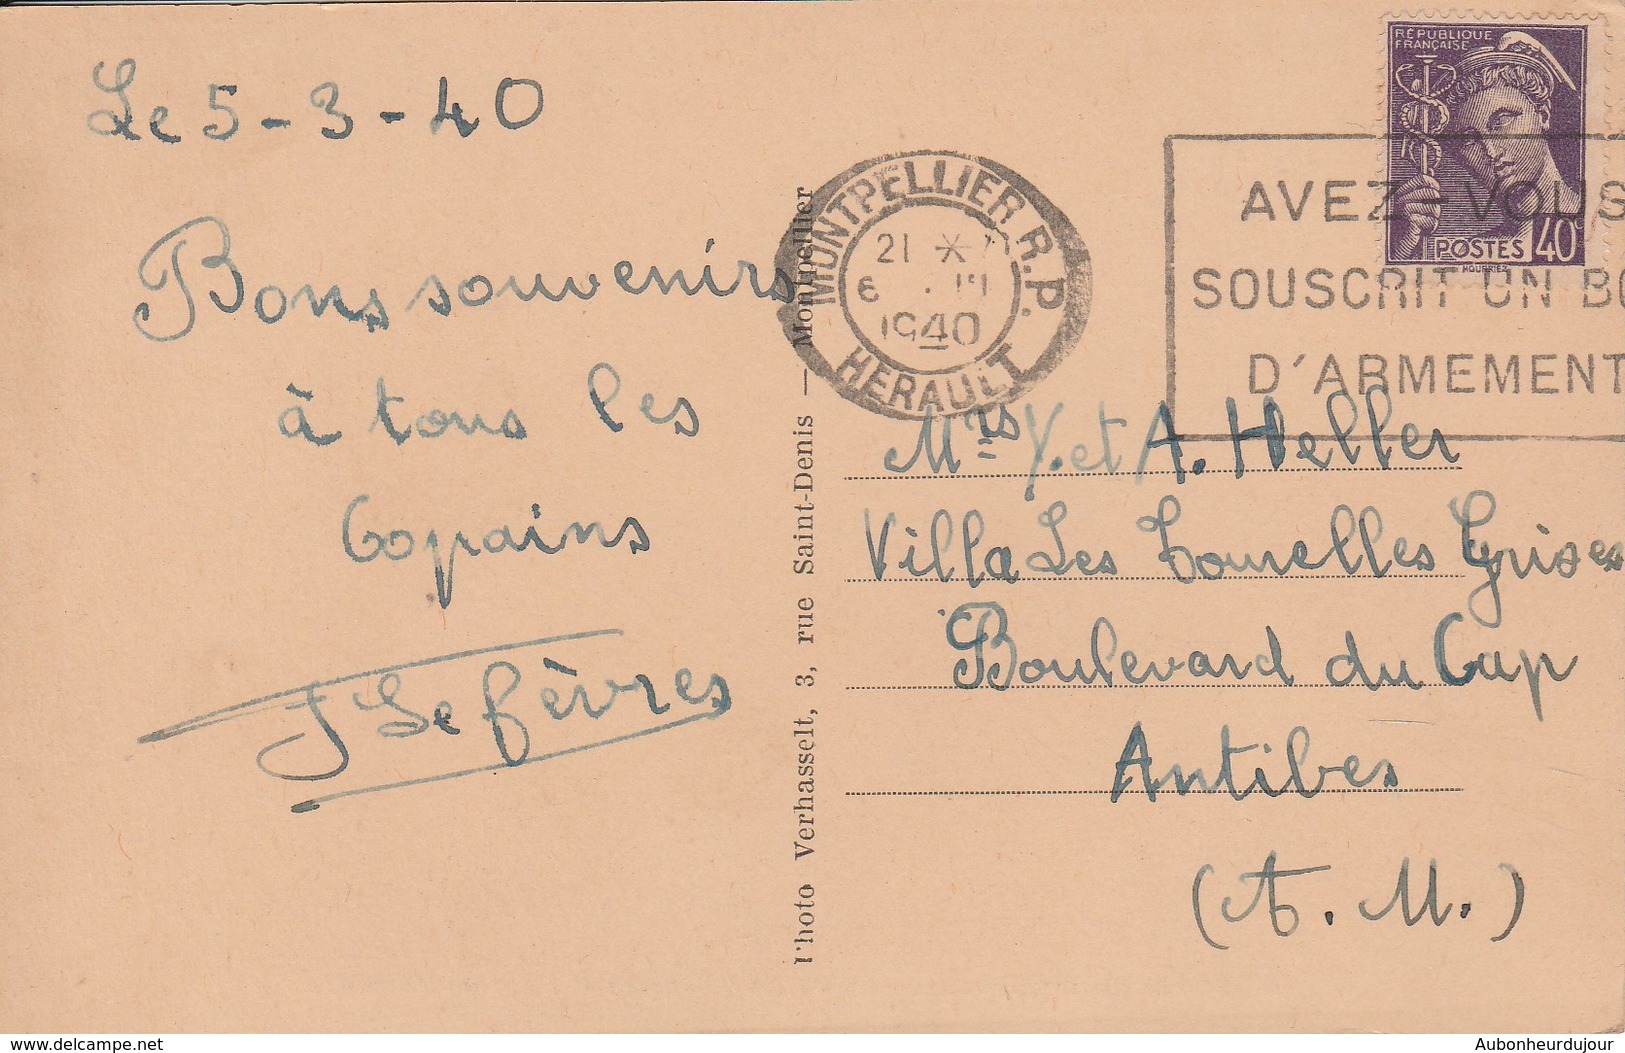 Le 5-3-40
Bons souvenirs
à tous les
Copains
J Lefèvres
Photo Verhasselt, 3, rue Saint-Denis — Montpellier
MONTPELLIER R.P.
21 *
6 III
1940
HERAULT
RÉPUBLIQUE
FRANÇAISE
POSTES 40c
MOURRIEZ
AVEZ-VOUS
SOUSCRIT UN BO
D'ARMEMENT
Mrs Y. et A. Heller
Villa Les Tourelles Grises
Boulevard du Cap
Antibes
(A. M.)
www.delcampe.net
Aubonheurdujour